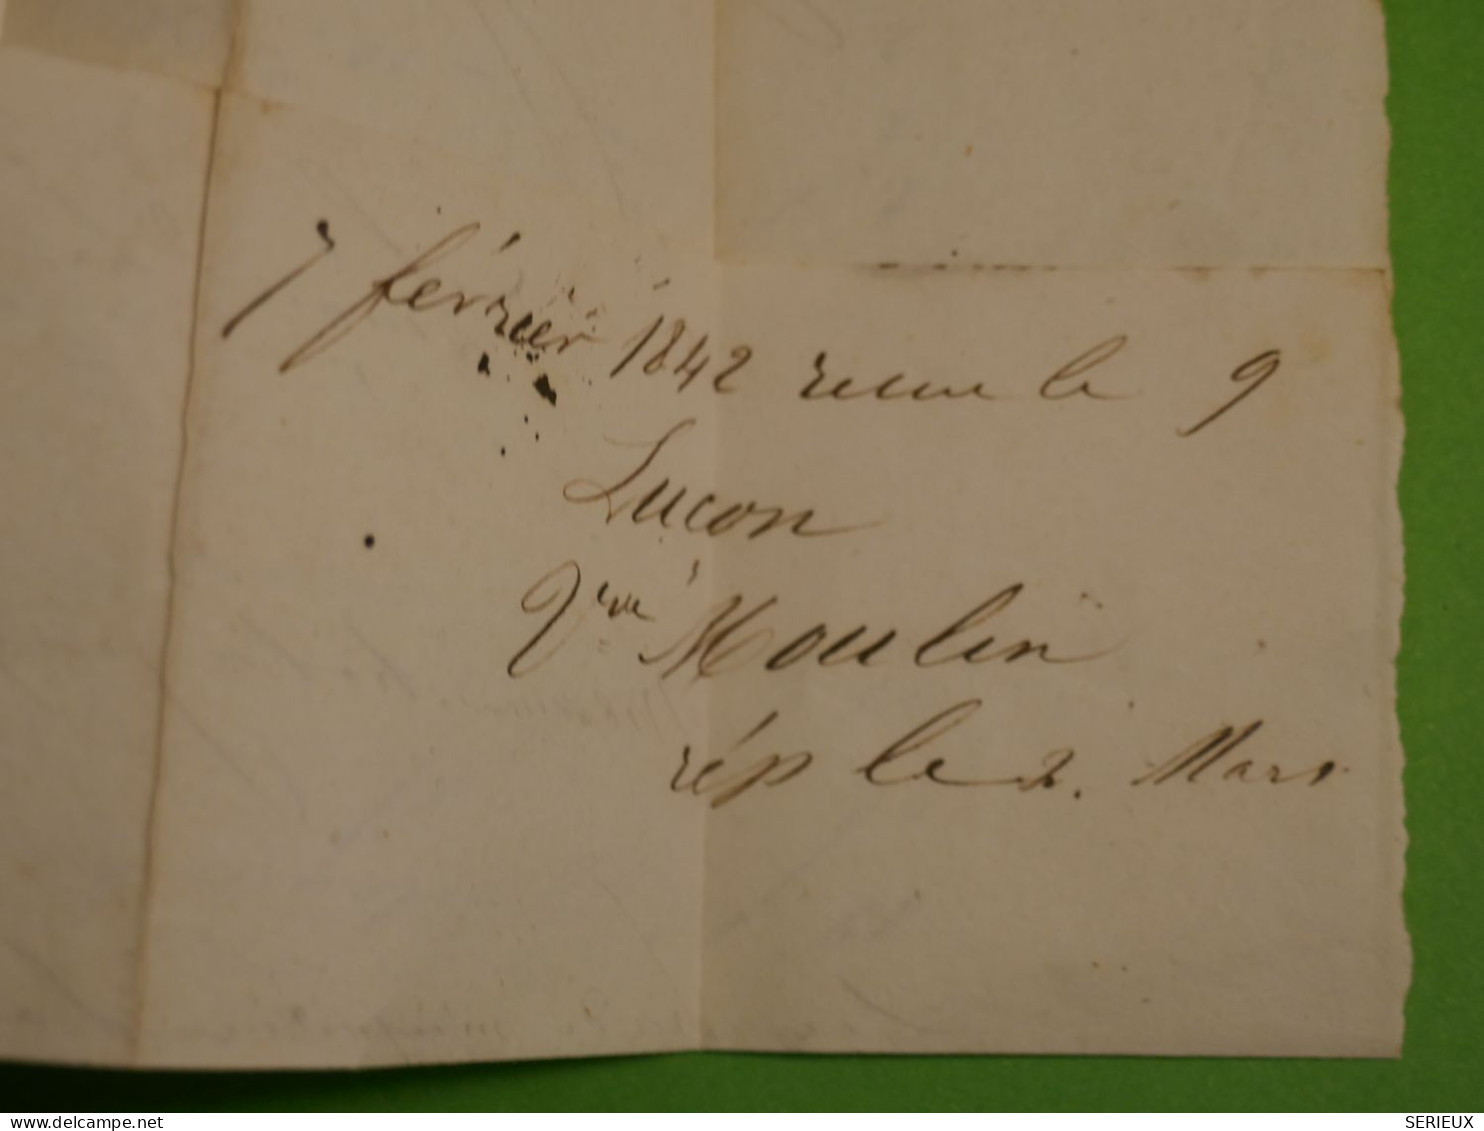 7 février 1842 reçue le 9
Luçon
Vve Moulin
rép le 2. Mars
SERIEUX